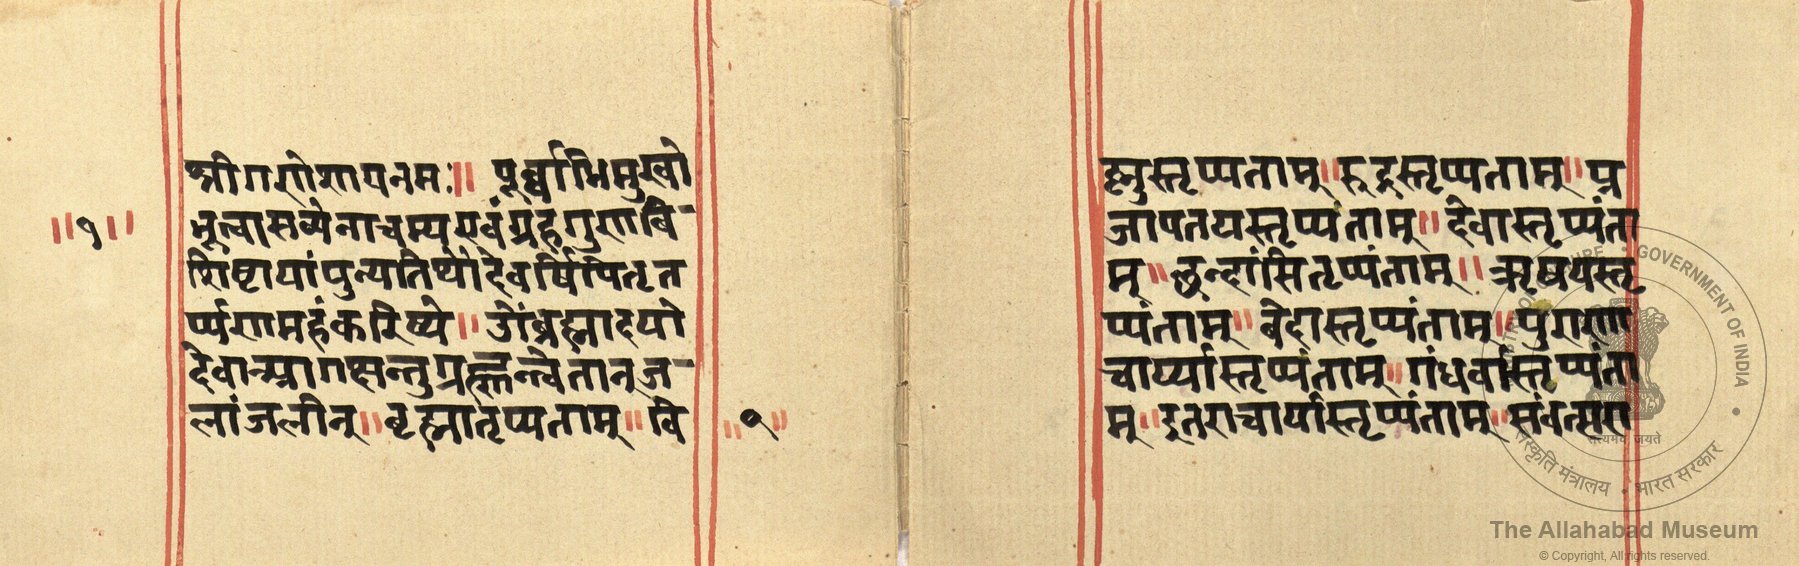 श्रीगणेशायनमः॥ पूर्व्वाभिमुखो
भूत्वासव्येनाचम्य एवंग्रहगुणवि-
॥१॥
शिष्टायांपुन्यतिथौदेवर्षिपितृत
र्प्पणमहंकरिष्ये॥ ॐब्रह्मादयो
देवान्प्रागछन्तुग्रह्णन्त्वेतान्ज-
लांजलीन्॥ बृह्मातृप्यताम्॥ वि
॥१॥
ष्णुस्तृप्यताम्॥ रुद्रस्तृप्यताम्॥ प्र
जापतयस्तृप्यंताम्॥ देवास्तृप्यंता
म्॥ छन्दांसितृप्यंताम्॥ ऋषयस्तृ
प्यंताम्॥ बेदास्तृप्यंताम्॥ पुराणा
चार्य्यास्तृप्यंताम्॥ गंधर्वास्तृप्यंता
म्॥ इतराचार्यास्तृप्यंताम्॥ संवत्सरा
GOVERNMENT OF INDIA
सत्यमेव जयते
संस्कृति मंत्रालय • भारत सरकार
The Allahabad Museum
© Copyright, All rights reserved.